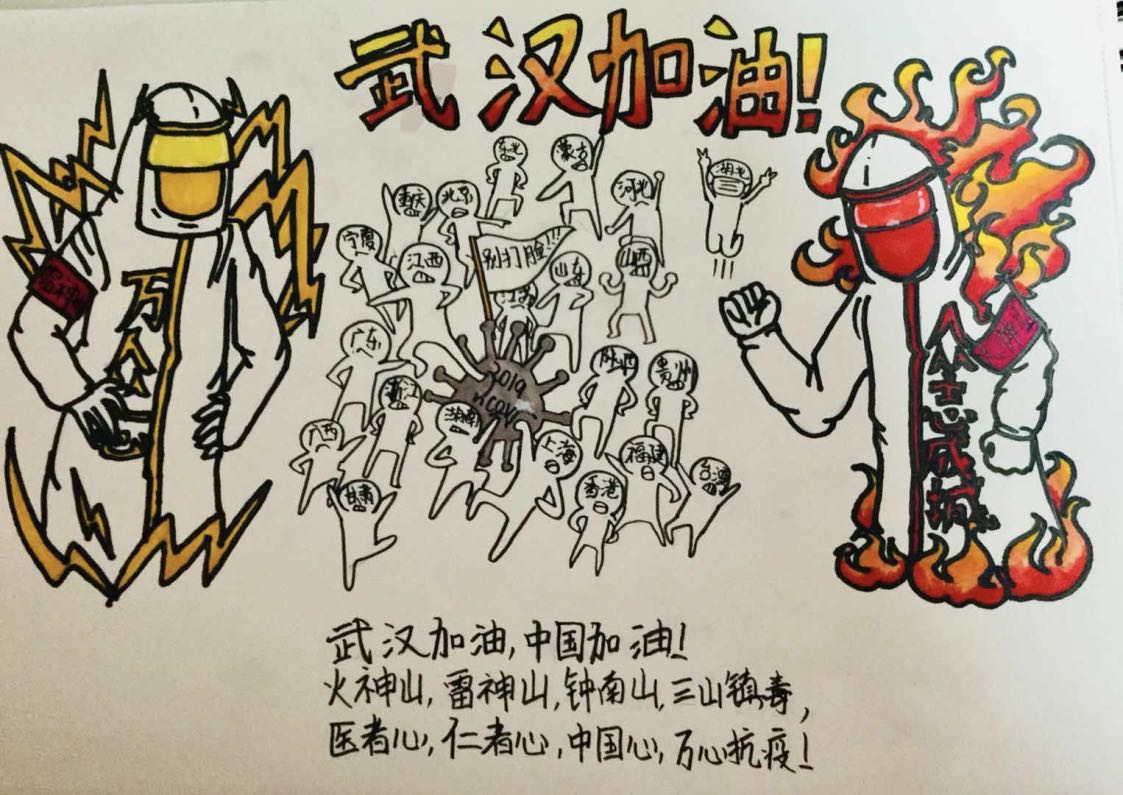 武汉加油!
东北
蒙古
河北
湖北
重庆
北京
宁夏
江西
别打脸!!!
山东
山西
江苏
雷神
万众
众志成城
广东
2019
nCoV
陕西
贵州
浙江
湖南
广西
上海
福建
台湾
甘肃
香港
武汉加油,中国加油!
火神山,雷神山,钟南山,三山镇毒,
医者心,仁者心,中国心,万心抗疫!